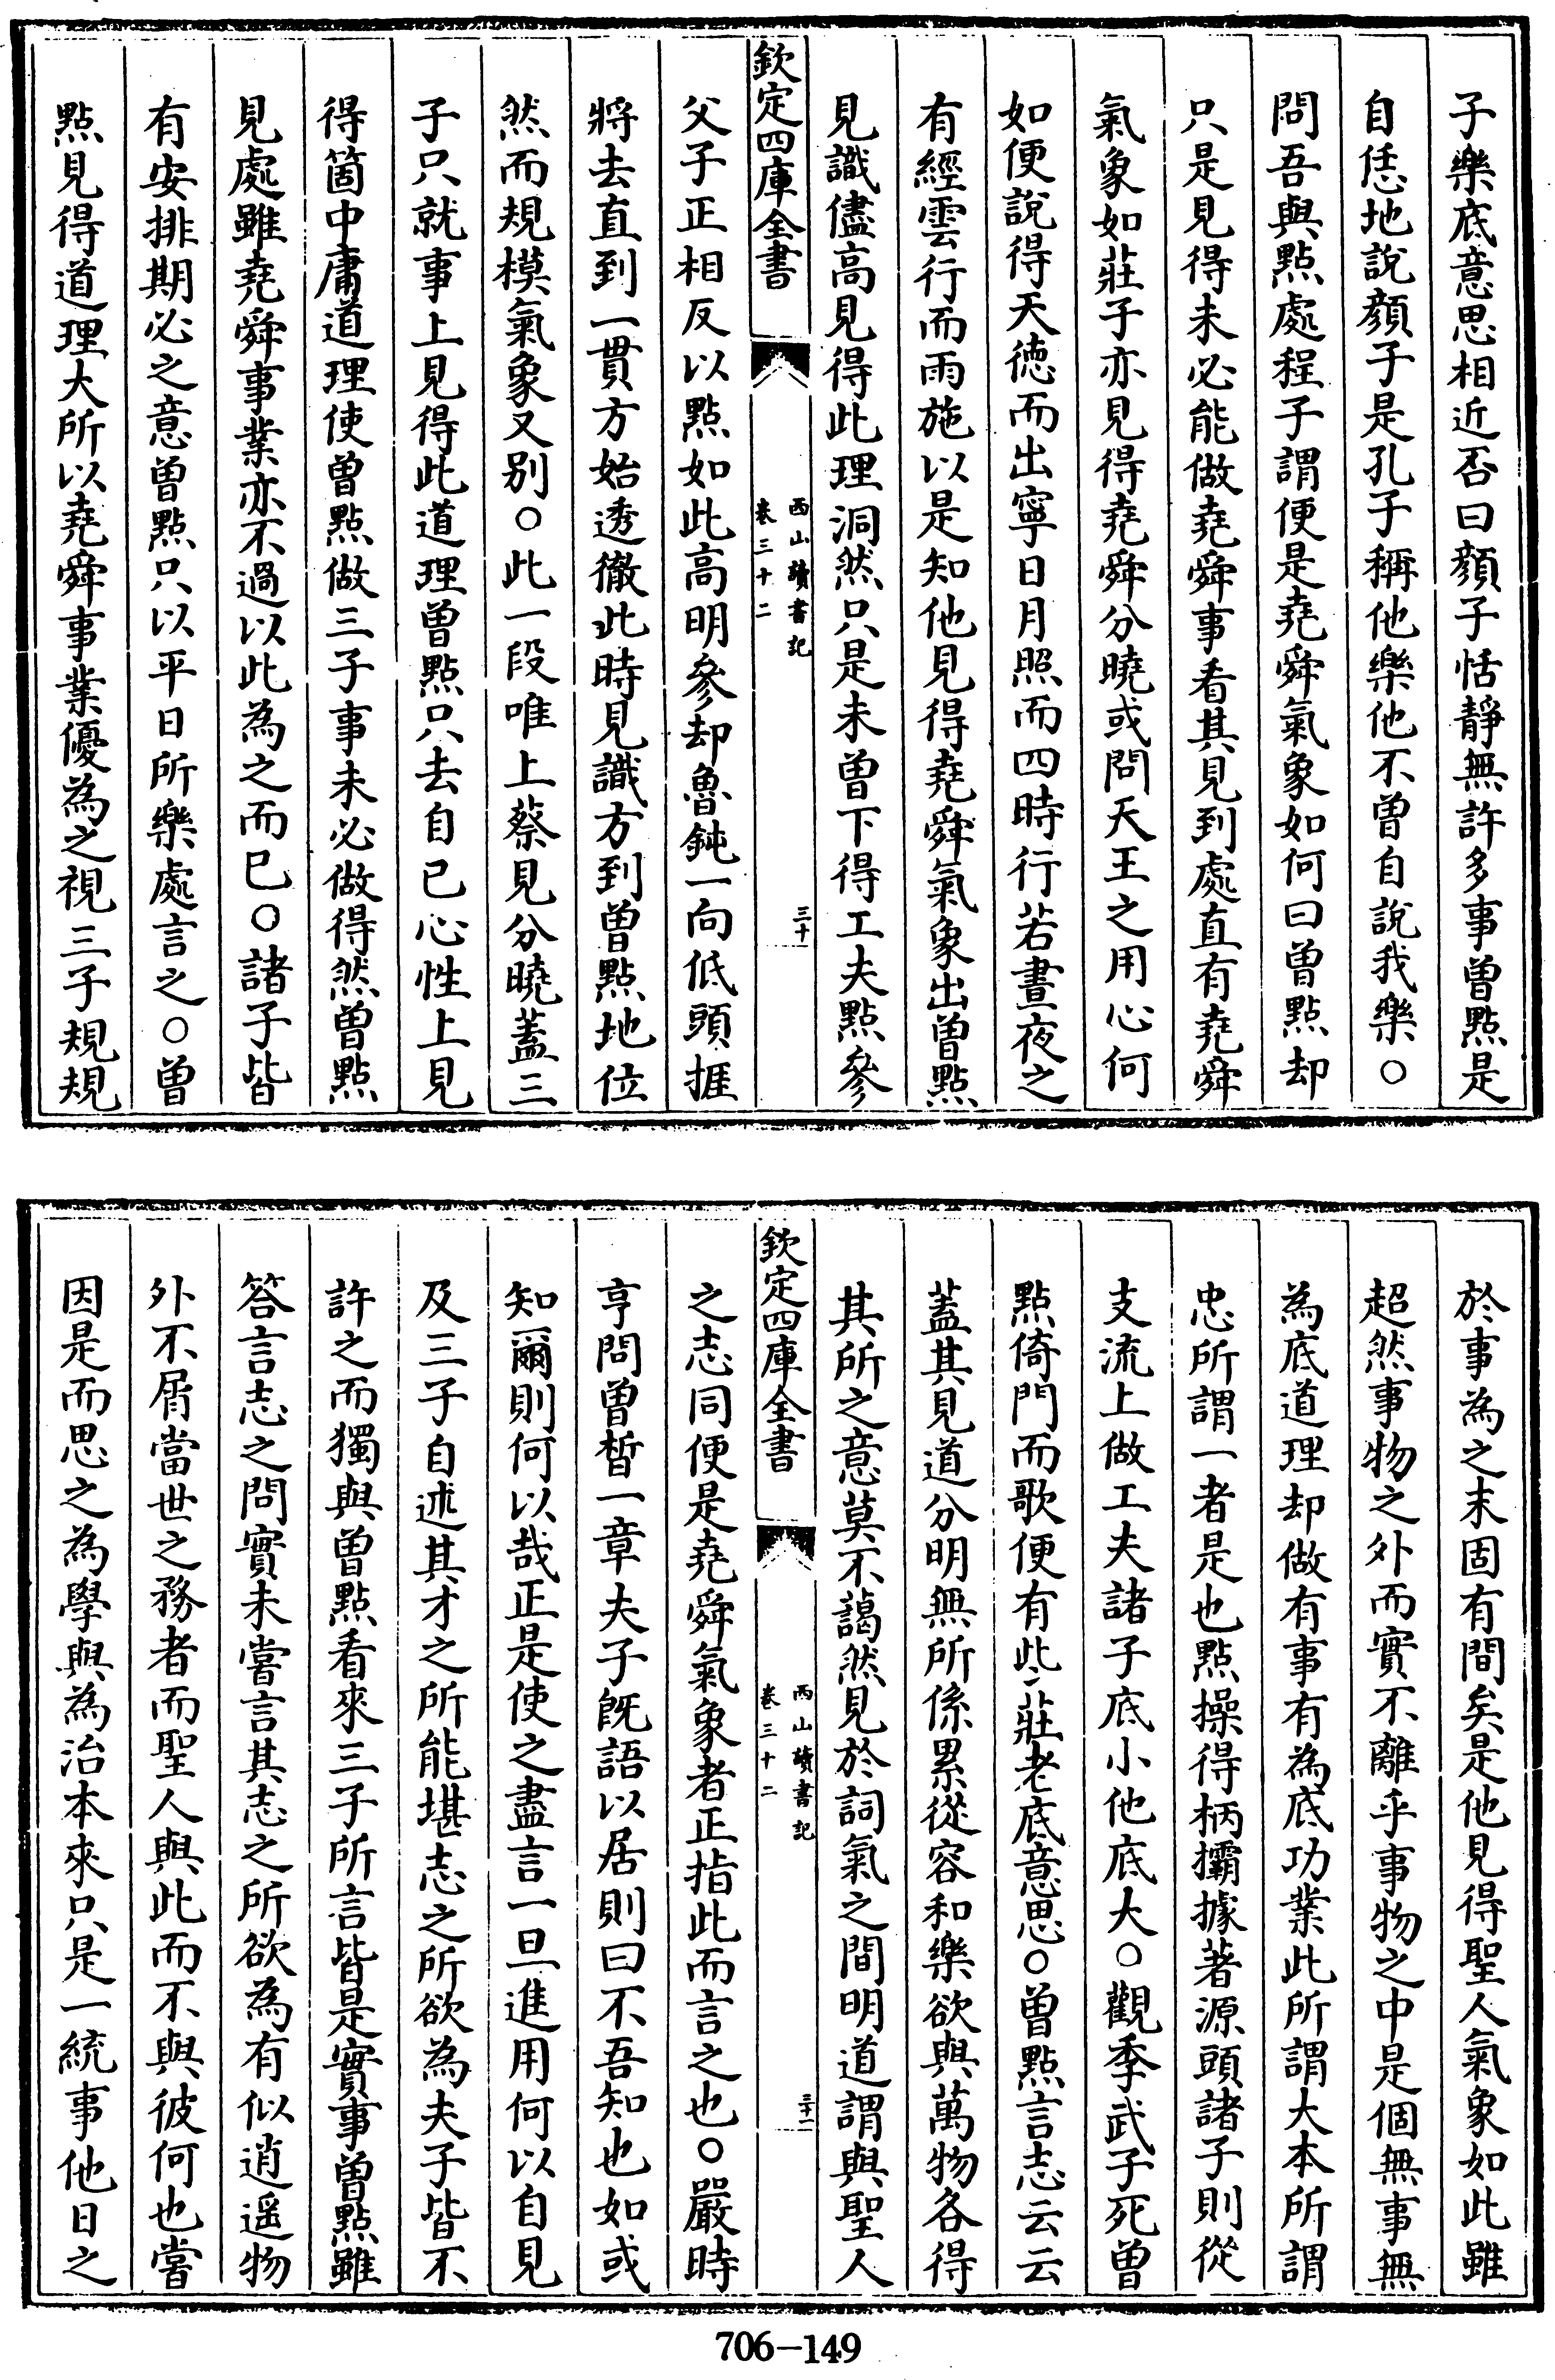 子樂底意思相近否曰顔子恬靜無許多事曽點是
自恁地說顔子是孔子稱他樂他不曽自說我樂○
問吾與點處程子謂便是堯舜氣象如何曰曽點却
只是見得未必能做堯舜事看其見到處直有堯舜
氣象如莊子亦見得堯舜分曉或問天王之用心何
如便說得天徳而出寧日月照而四時行若晝夜之
有經雲行而雨施以是知他見得堯舜氣象出曽點
見識儘高見得此理洞然只是未曽下得工夫點參
欽定四庫全書
西山讀書記
卷三十二
三十
父子正相反以點如此高明參却魯鈍一向低頭捱
將去直到一貫方始透徹此時見識方到曽點地位
然而規模氣象又別○此一段唯上蔡見分曉蓋三
子只就事上見得此道理曽點只去自己心性上見
得箇中庸道理使曽點做三子事未必做得然曽點
見處雖堯舜事業亦不過以此為之而已○諸子皆
有安排期必之意曽點只以平日所樂處言之○曽
點見得道理大所以堯舜事業優為之視三子規規
於事為之末固有間矣是他見得聖人氣象如此雖
超然事物之外而實不離乎事物之中是個無事無
為底道理却做有事有為底功業此所謂大本所謂
忠所謂一者是也點操得柄壩據著源頭諸子則從
支流上做工夫諸子底小他底大○觀季武子死曽
點倚門而歌便有些莊老底意思○曽點言志云云
蓋其見道分明無所係累從容和樂欲與萬物各得
其所之意莫不藹然見於詞氣之間明道謂與聖人
欽定四庫全書
西山讀書記
卷三十二
三十一
之志同便是堯舜氣象者正指此而言之也○嚴時
亨問曽晳一章夫子旣語以居則曰不吾知也如或
知爾則何以哉正是使之盡言一旦進用何以自見
及三子自述其才之所能堪志之所欲為夫子皆不
許之而獨與曽點看來三子所言皆是實事曽點雖
答言志之問實未嘗言其志之所欲為有似逍遥物
外不屑當世之務者而聖人與此而不與彼何也嘗
因是而思之為學與為治本來只是一統事他日之
706-149